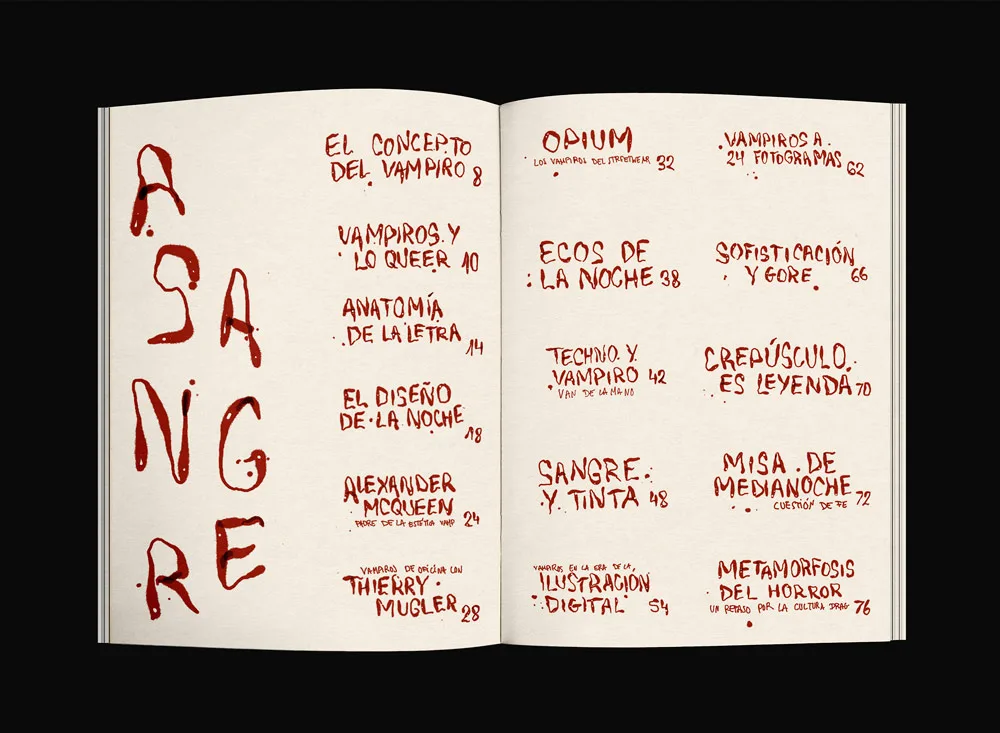 A
SA
NG
RE
EL CONCEPTO
DEL VAMPIRO 8
VAMPIROS Y
LO QUEER 10
ANATOMÍA
DE LA LETRA
14
EL DISEÑO
DE LA NOCHE
18
ALEXANDER
MCQUEEN
PADRE DE LA ESTÉTICA VAMP 24
VAMPIROS DE OFICINA CON
THIERRY
MUGLER 28
OPIUM
LOS VAMPIROS DEL STREETWEAR 32
ECOS DE
LA NOCHE 38
TECHNO Y
VAMPIRO 42
VAN DE LA MANO
SANGRE
Y TINTA 48
VAMPIROS EN LA ERA DE LA
ILUSTRACIÓN
DIGITAL 54
VAMPIROS A
24 FOTOGRAMAS 62
SOFISTICACIÓN
Y GORE 66
CREPÚSCULO
ES LEYENDA 70
MISA DE
MEDIANOCHE 72
CUESTIÓN DE FE
METAMORFOSIS
DEL HORROR
UN REPASO POR LA CULTURA DRAG 76